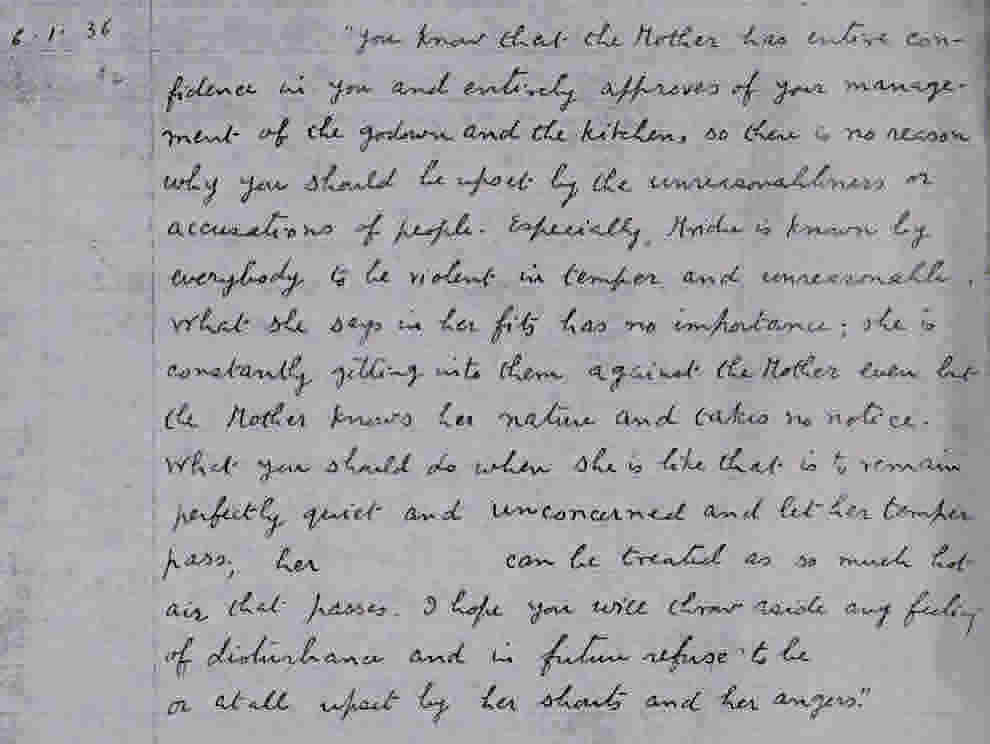 6.1.36
"You know that the Mother has entire con-
fidence in you and entirely approves of your manage-
ment of the godown and the kitchen, so there is no reason
why you should be upset by the unreasonableness or
accusations of people. Especially, Mridu is known by
everybody to be violent in temper and unreasonable.
What she says in her fits has no importance; she is
constantly getting into them against the Mother even but
the Mother knows her nature and takes no notice.
What you should do when she is like that is to remain
perfectly quiet and unconcerned and let her temper
pass; her can be treated as so much hot
air that passes. I hope you will throw aside any feeling
of disturbance and in future refuse to be
or at all upset by her shouts and her angers."